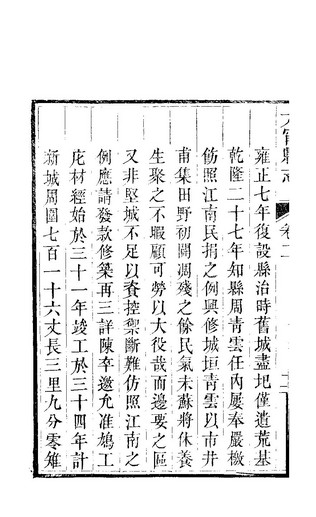 大寗縣志
卷二
雍正七年復設縣治時舊城盡圯僅遺荒基
乾隆二十七年知縣周青雲任內屢奉嚴檄
飭照江南民捐之例興修城垣青雲以市井
甫集田野初闢凋殘之餘民氣未蘇將休養
生聚之不暇顧可勞以大役哉而邊要之區
又非堅城不足以資控禦斷難仿照江南之
例應請發款修築再三詳陳幸邀允准鳩工
庀材經始於三十一年竣工於三十四年計
新城周圍七百一十六丈長三里九分零雉